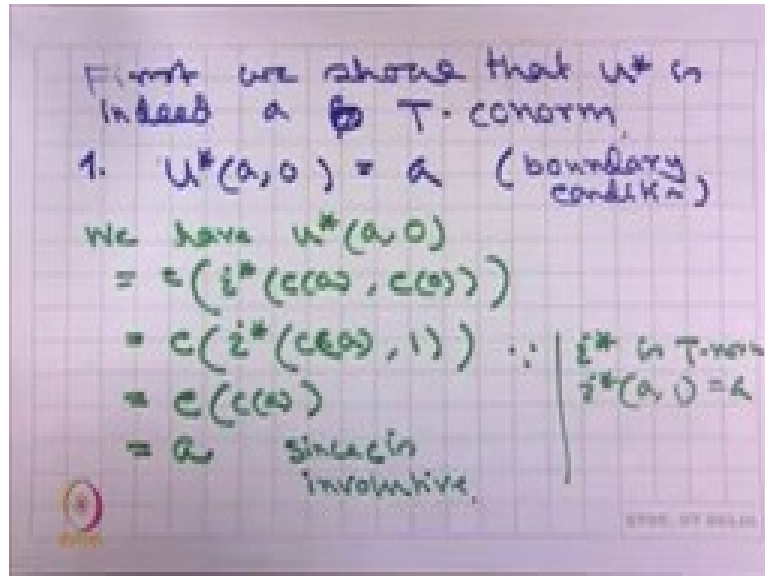 First we show that u* is
indeed a T-conorm.
1. u*(a,0) = a (boundary
condition)
We have u*(a,0)
= c(i*(c(a), c(0)))
= c(i*(c(a), 1)) ∵ i* is T-norm
i*(a,1) = a
= c(c(a))
= a since c is
involutive.